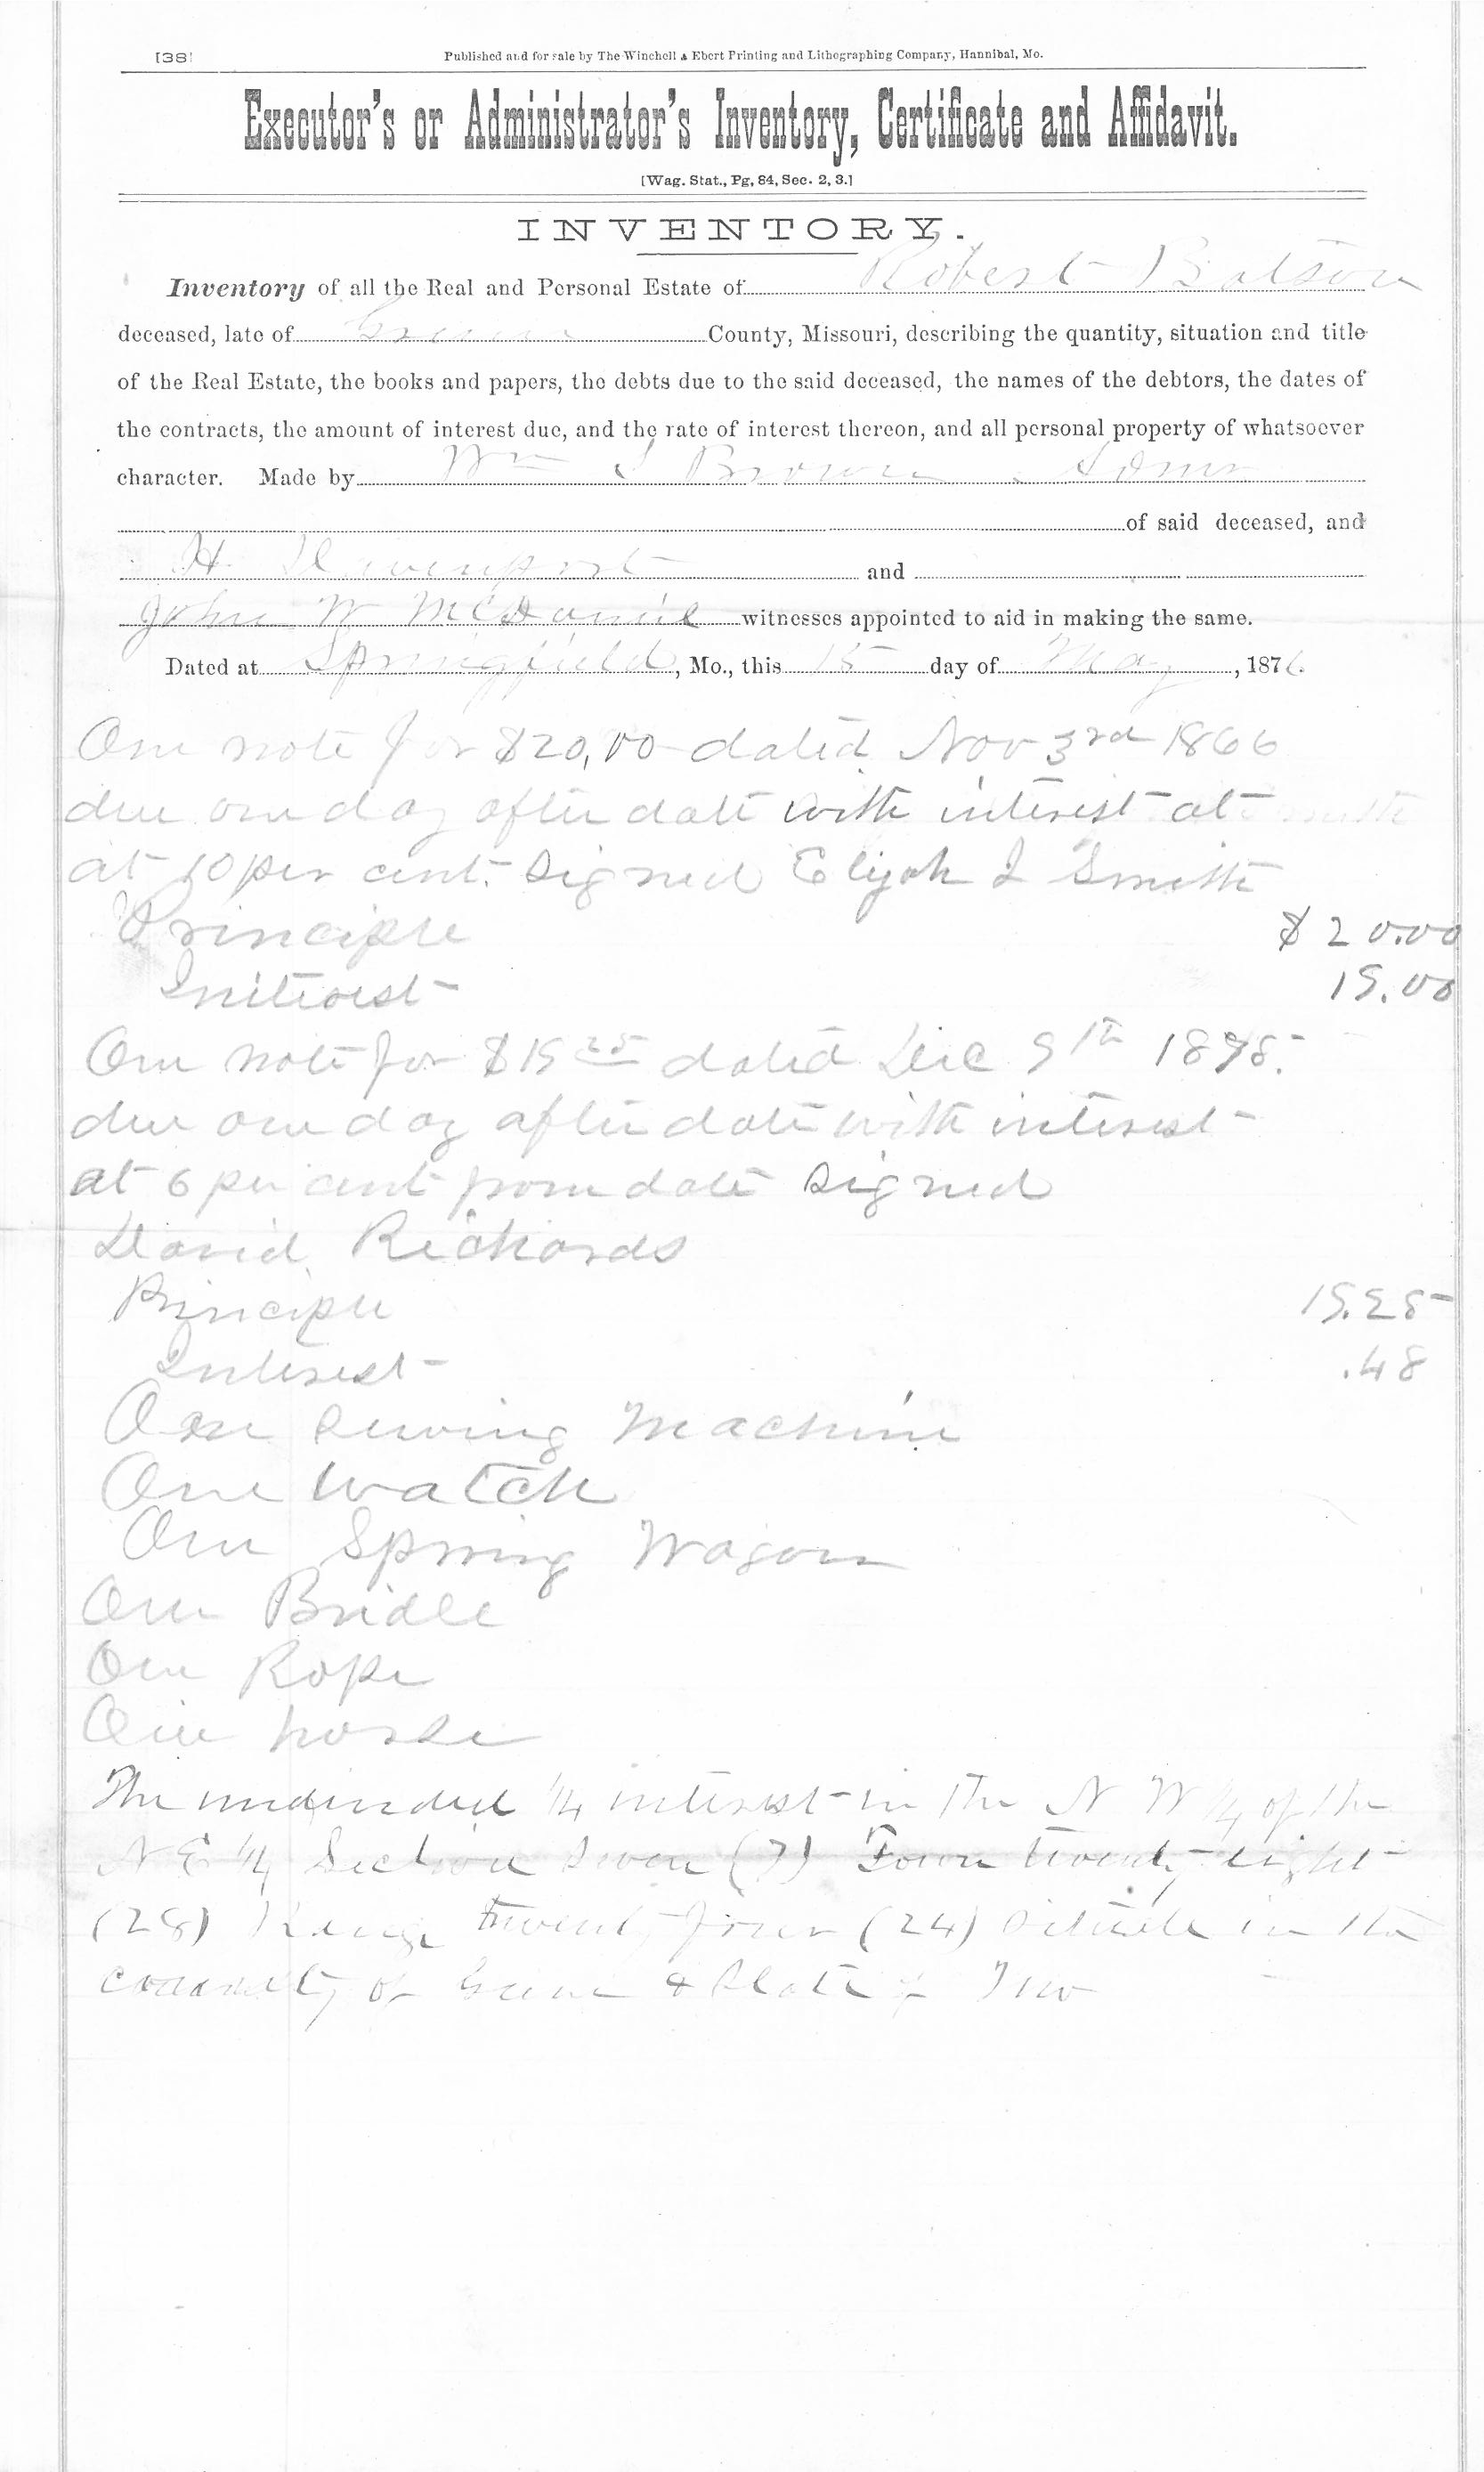 [38]
Published and for sale by The Winchell & Ebert Printing and Lithographing Company, Hannibal, Mo.
Executor's or Administrator's Inventory, Certificate and Affidavit.
[Wag. Stat., Pg, 84, Sec. 2, 3.]
INVENTORY.
Inventory of all the Real and Personal Estate of Robert Batson
deceased, late of Greene County, Missouri, describing the quantity, situation and title
of the Real Estate, the books and papers, the debts due to the said deceased, the names of the debtors, the dates of
the contracts, the amount of interest due, and the rate of interest thereon, and all personal property of whatsoever
character. Made by Wm Brown Admr
of said deceased, and
H. Davenport and
John W McDaniel witnesses appointed to aid in making the same.
Dated at Springfield, Mo., this 15 day of May, 1876.
One note for $20,00 dated Nov 3rd 1866
due one day after date with interest at
at 10 per cent. Signed Elijah Smith
Principle $20.00
Initerest 19.00
One note for $15 25 dated Dec 9th 1875.
due one day after date with interest
at 6 per cent from date Signed
David Richards
Principle 15.25
Interest .48
One Sewing Machine
One Watch
One Spring Wagon
One Bridle
One Rope
One horse
The undivided 1/4 interest in the N W 1/4 of the
N E 1/4 Section Seven (7) Town twenty eight
(28) Range twenty four (24) Situate in the
county of Greene & State of Mo